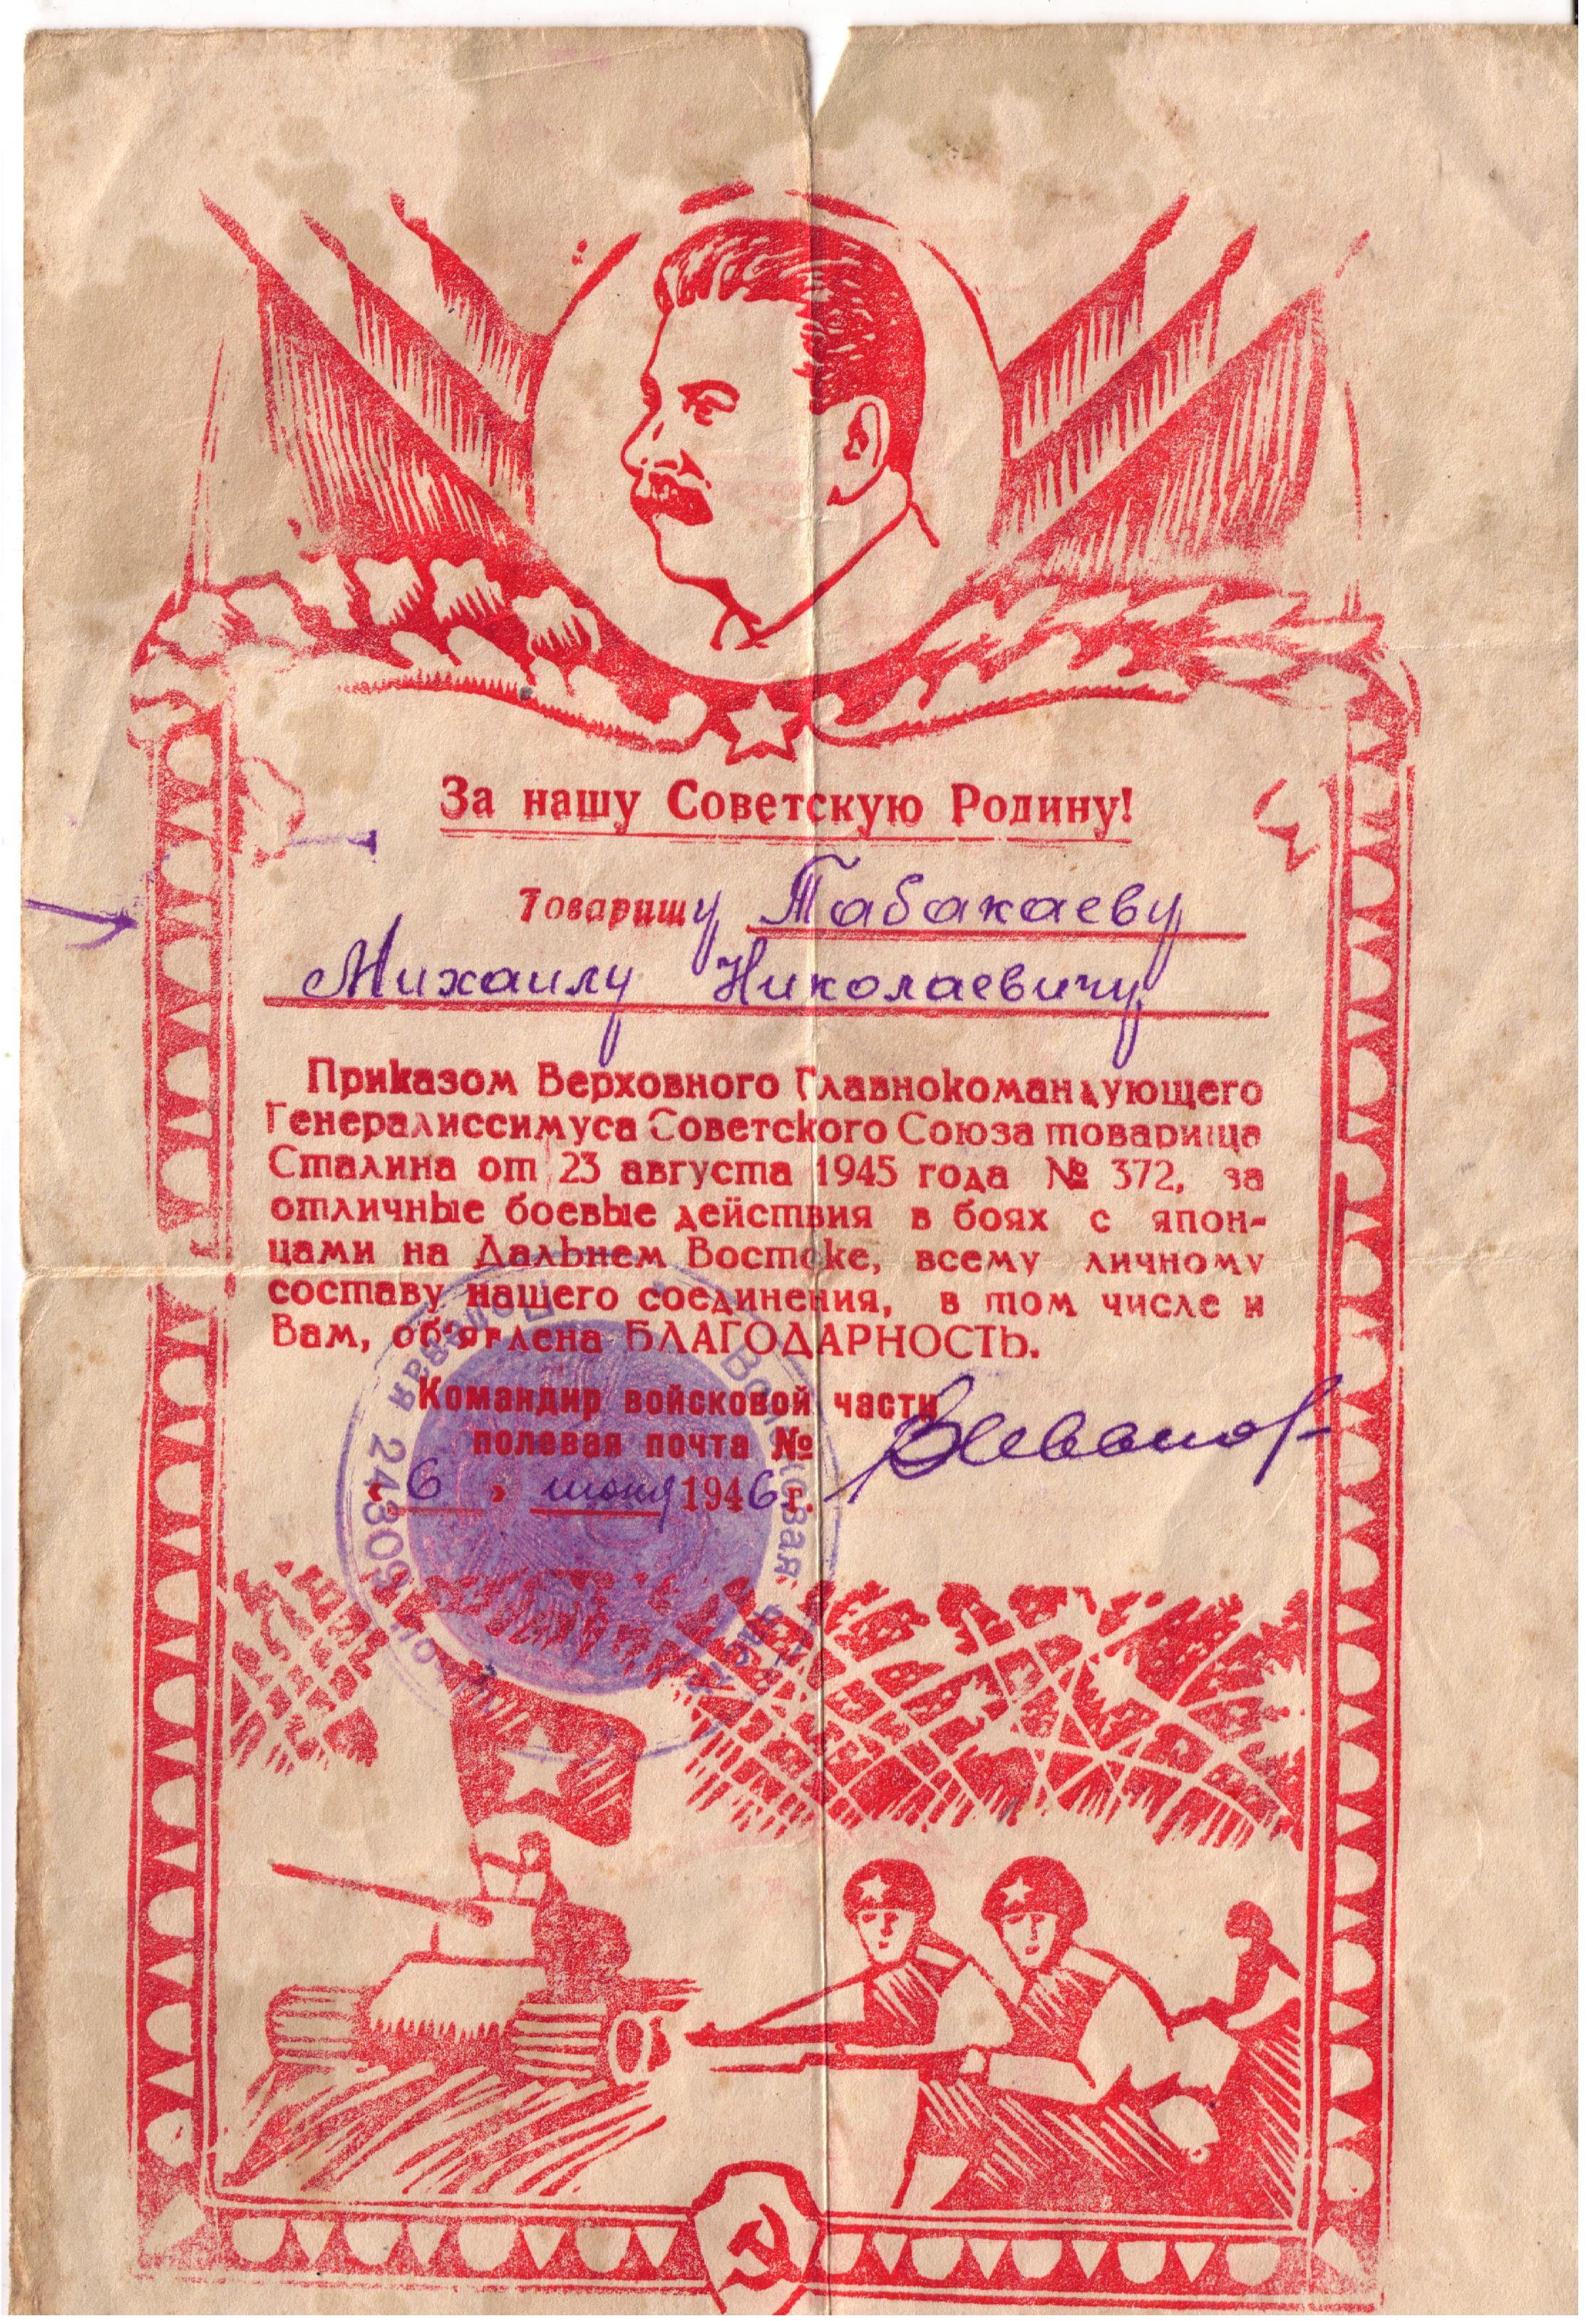 За нашу Советскую Родину!
Товарищу Табакаеву
Михаилу Николаевичу
Приказом Верховного Главнокомандующего
Генералиссимуса Советского Союза товарища
Сталина от 23 августа 1945 года № 372, за
отличные боевые действия в боях с япон-
цами на Дальнем Востоке, всему личному
составу нашего соединения, в том числе и
Вам, об'явлена БЛАГОДАРНОСТЬ.
Командир войсковой части
полевая почта №
« 6 » июня 1946 г.
Войсковая часть
Полевая почта 24309